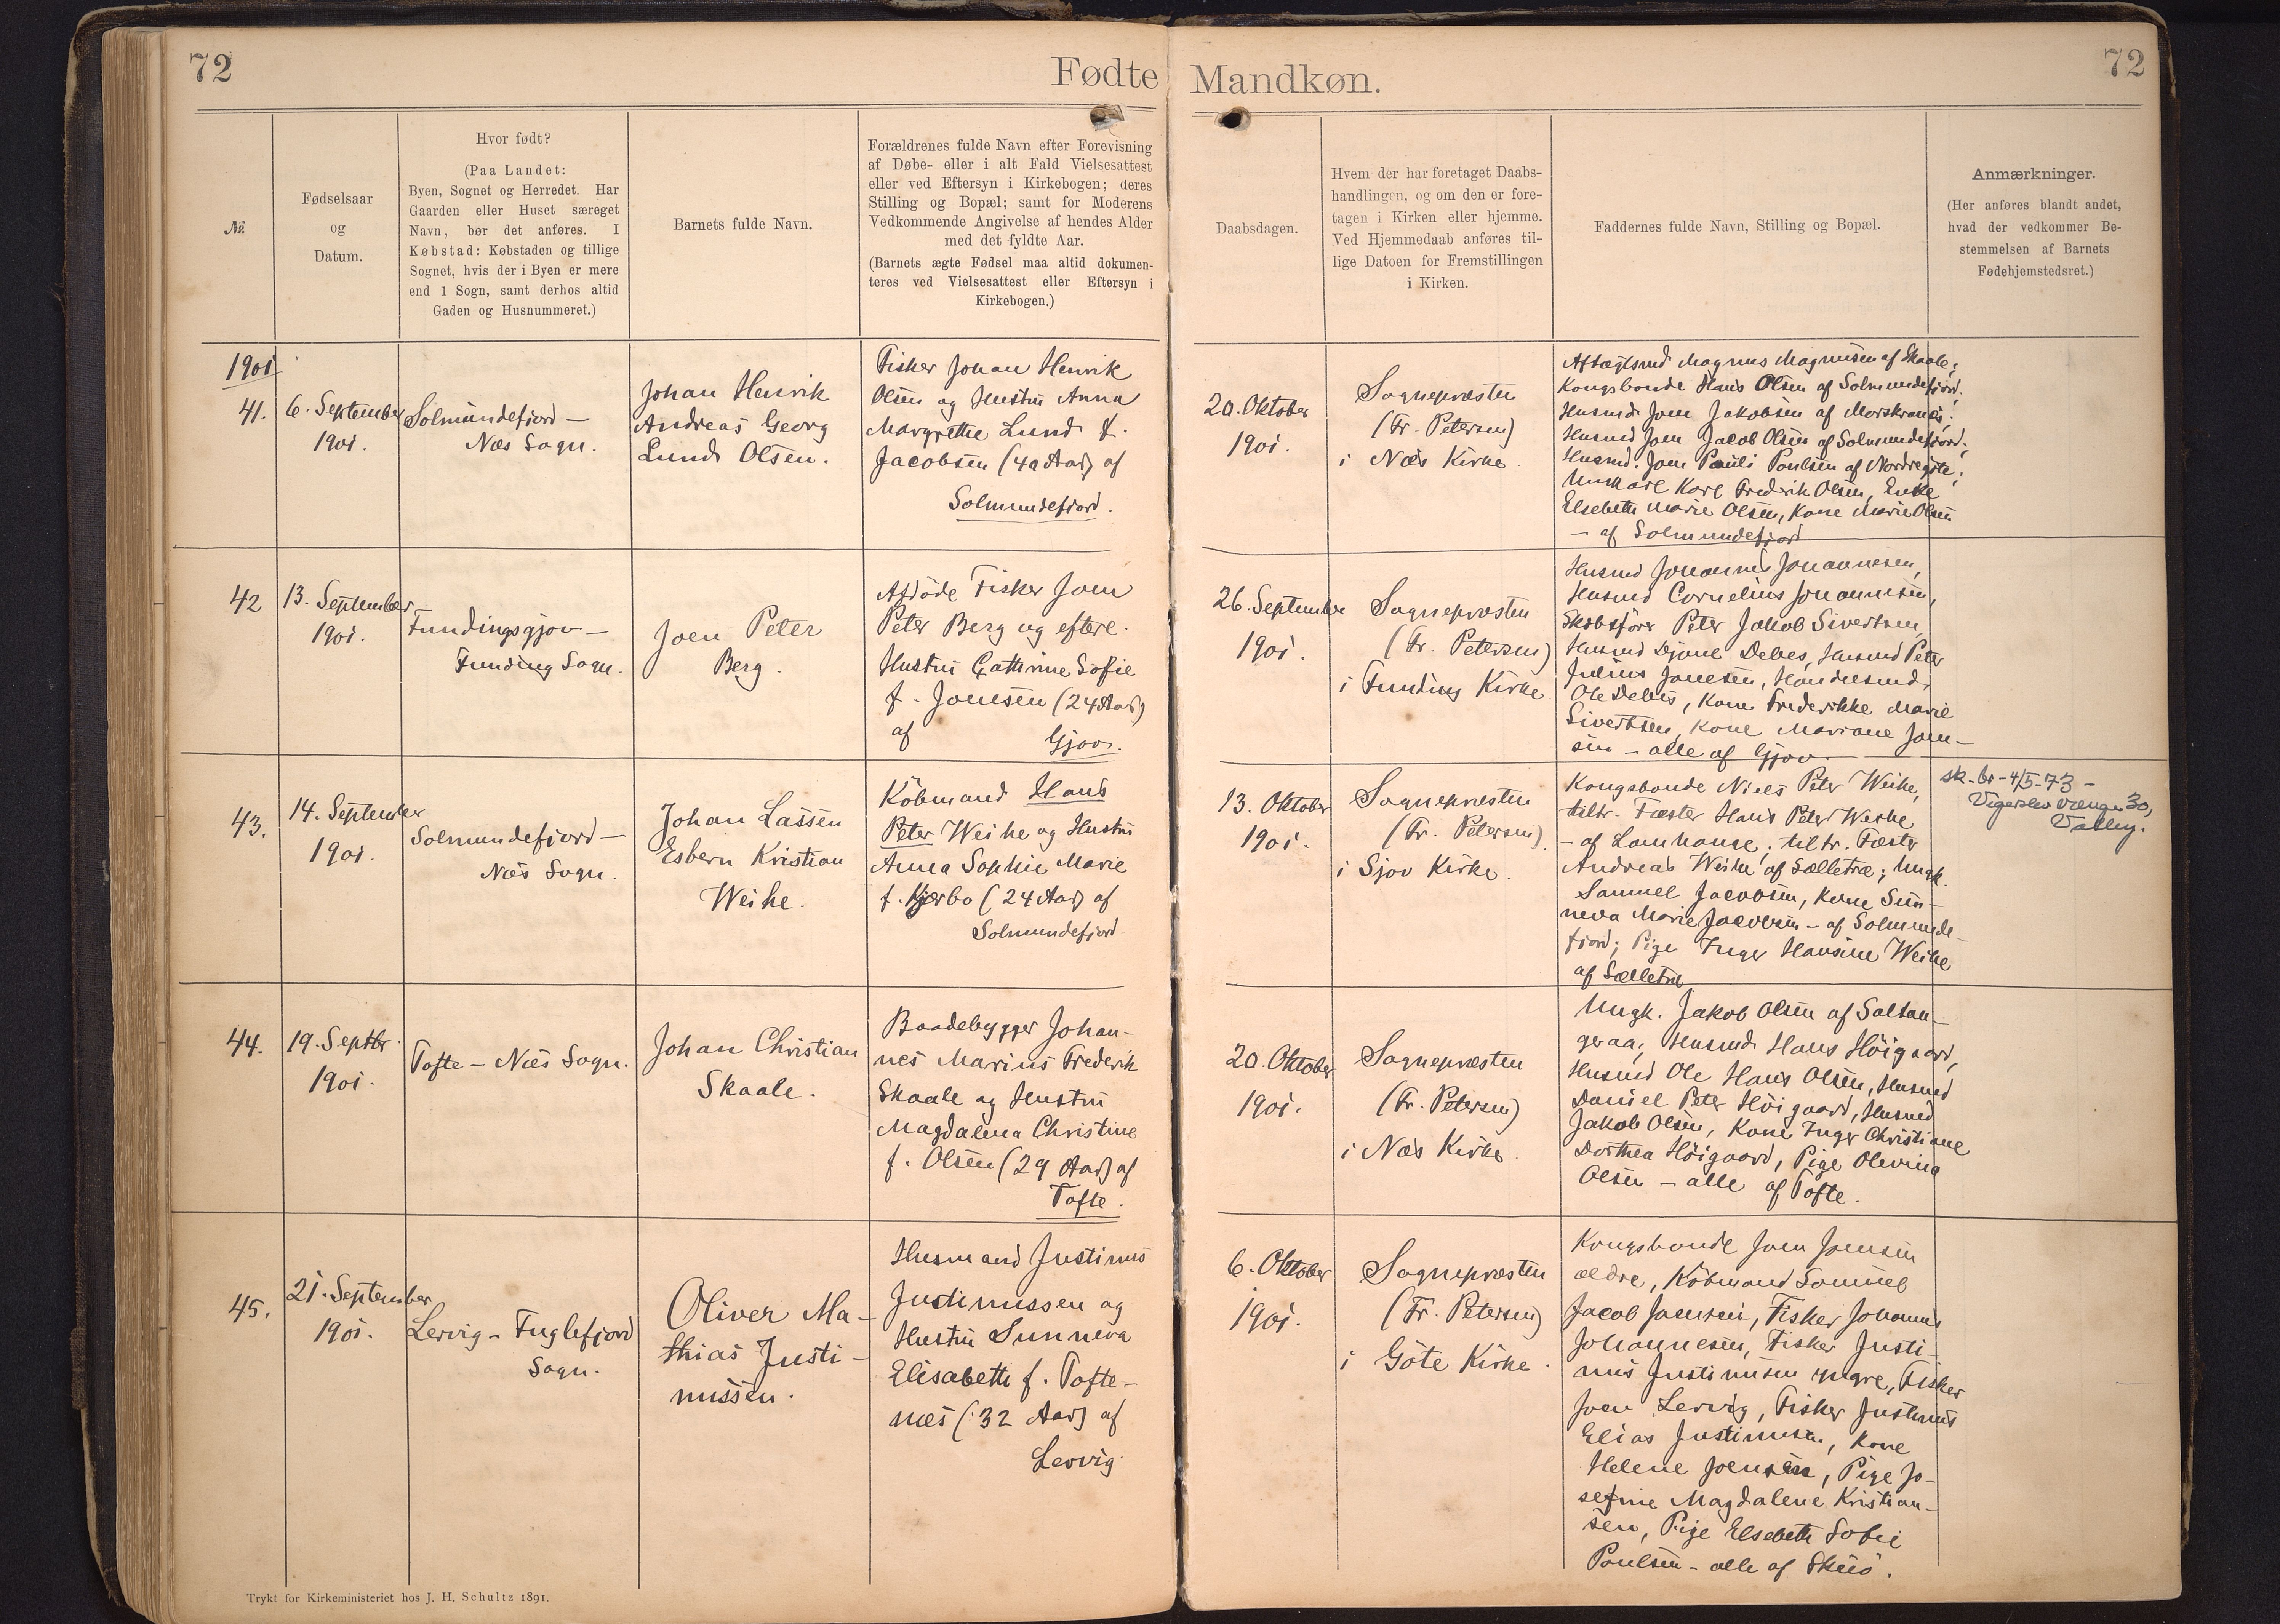 72
Fødte
Mandkøn.
72
№
Fødselsaar
og
Datum.
Hvor født?
(Paa Landet:
Byen, Sognet og Herredet. Har
Gaarden eller Huset særeget
Navn, bør det anføres. I
Købstad: Købstaden og tillige
Sognet, hvis der i Byen er mere
end 1 Sogn, samt derhos altid
Gaden og Husnummeret.)
Barnets fulde Navn.
Forældrenes fulde Navn efter Forevisning
af Døbe- eller i alt Fald Vielsesattest
eller ved Eftersyn i Kirkebogen; deres
Stilling og Bopæl; samt for Moderens
Vedkommende Angivelse af hendes Alder
med det fyldte Aar.
(Barnets ægte Fødsel maa altid dokumen-
teres ved Vielsesattest eller Eftersyn i
Kirkebogen.)
Daabsdagen.
Hvem der har foretaget Daabs-
handlingen, og om den er fore-
tagen i Kirken eller hjemme.
Ved Hjemmedaab anføres til-
lige Datoen for Fremstillingen
i Kirken.
Faddernes fulde Navn, Stilling og Bopæl.
Anmærkninger.
(Her anføres blandt andet,
hvad der vedkommer Be-
stemmelsen af Barnets
Fødehjemstedsret.)
1901
41.
6. September
1901.
Solmundefjord –
Næs Sogn.
Johan Henrik
Andreas Georg
Lund Olsen.
Fisker Johan Henrik
Olsen og Hustru Anna
Margrethe Lund f.
Jacobsen (40 Aar) af
Solmundefjord.
20. Oktober
1901.
Sognepræsten
(Fr. Petersen)
i Næs Kirke.
Aftægtsmd Magnus Magnussen af Skaale;
Kongsbonde Hans Olsen af Solmundefjord;
Husmd. Joen Jakobsen af Morskranes;
Husmd Joen Jacob Olsen af Solmundefjord;
Husmd. Joen Pauli Poulsen af Nordregøte;
Ungkarl Karl Fredrik Olsen, Enke
Elsebeth Marie Olsen, Kone Marie Olsen
– af Solmundefjord
42
13. September
1901.
Fundingsgjov –
Funding Sogn.
Joen Peter
Berg.
Afdøde Fisker Joen
Peter Berg og efterl.
Hustru Cathrine Sofie
f. Joensen (24 Aar)
af Gjov.
26. September
1901.
Sognepræsten
(Fr. Petersen)
i Funding Kirke.
Husmd Johannes Johannesen,
Husmd Cornelius Johannesen,
Skibsfører Peter Jakob Sivertsen,
Husmd Djone Debes, Husmd Peter
Julius Joensen, Handelsmd.
Ole Debes, Kone Frederikke Marie
Sivertsen, Kone Mariane Joen-
sen – alle af Gjov.
43.
14. September
1901.
Solmundefjord –
Næs Sogn.
Johan Lassen
Esbern Kristian
Weihe.
Købmand Hans
Peter Weihe og Hustru
Anna Sophie Marie
f. Kjærbo (24 Aar) af
Solmundefjord
13. Oktober
1901.
Sognepræsten
(Fr. Petersen).
i Sjov Kirke.
Kongsbonde Niels Peter Weihe,
tiltr. Fæster Hans Peter Weihe
– af Lamhauge; tiltr. Fæster
Andreas Weihe af Sælletræ; Ungk.
Samuel Jacobsen, Kone Sun-
neva Marie Jacobsen – af Solmunde-
fjord; Pige Inger Hansine Weihe
af Sælletræ
sk. br – 4/5-73 –
Vigerslev vænge 30,
Valby.
44.
19. Septbr.
1901.
Tofte – Næs Sogn.
Johan Christian
Skaale.
Baadebygger Johan-
nes Marius Frederik
Skaale og Hustru
Magdalena Christine
f. Olsen (29 Aar) af
Tofte.
20. Oktober
1901.
Sognepræsten
(Fr. Petersen)
i Næs Kirke.
Ungk. Jakob Olsen af Saltan-
geraa; Husmd Hans Höigaard,
Husmd Ole Hans Olsen, Husmd
Daniel Peter Höigaard, Husmd
Jakob Olsen, Kone Inger Christiane
Dorthea Höigaard, Pige Olevina
Olsen – alle af Tofte.
45.
21. September
1901.
Lervig – Fuglefjord
Sogn.
Oliver Ma-
thias Justi-
nussen.
Husmand Justinus
Justinussen og
Hustru Sunneva
Elisabeth f. Tofte-
næs (32 Aar) af
Lervig
6. Oktober
1901.
Sognepræsten
(Fr. Petersen)
i Göte Kirke.
Kongsbonde Joen Joensen
ældre, Købmand Samuel
Jacob Joensen, Fisker Johannes
Johannesen, Fisker Justi-
nus Justinusen yngre, Fisker
Joen Lervig, Fisker Justinus
Elias Justinusen, Kone
Helene Joensen, Pige Jo-
sefine Magdalene Kristian-
sen, Pige Elsebeth Sofie
Poulsen – alle af
Trykt for Kirkeministeriet hos J. H. Schultz 1891.